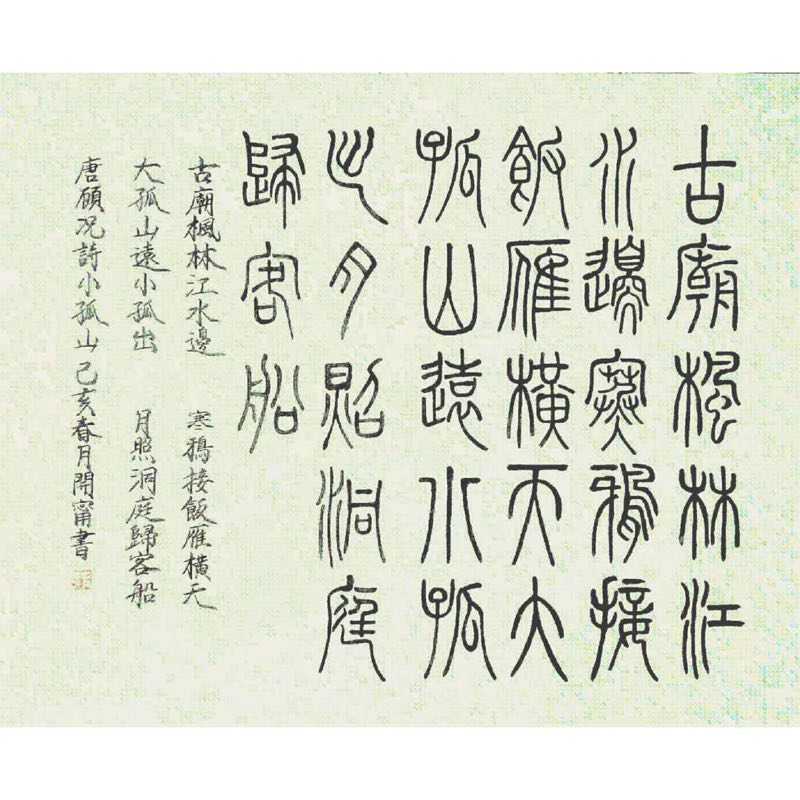 古廟楓林江
水邊寒鴉接
飯雁橫天大
孤山遠小孤
出月照洞庭
歸客船
古廟楓林江水邊 寒鴉接飯雁橫天
大孤山遠小孤出 月照洞庭歸客船
唐顧况詩小孤山己亥春月開甯書